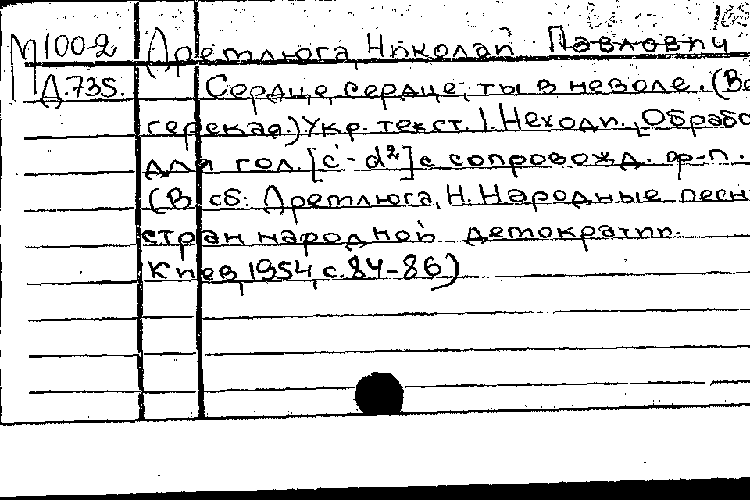 М100-2 Дремлюга, Николай Павлович
Д.735. Сердце, сердце, ты в неволе. (Ве
герская.) Укр. текст. І. Неходи., Обрабо
для гол. [c'-d²] с сопровожд. ф-п.
(В сб.: Дремлюга, Н. Народные песн
стран народной демократии.
Киев, 1954, с. 84-86)